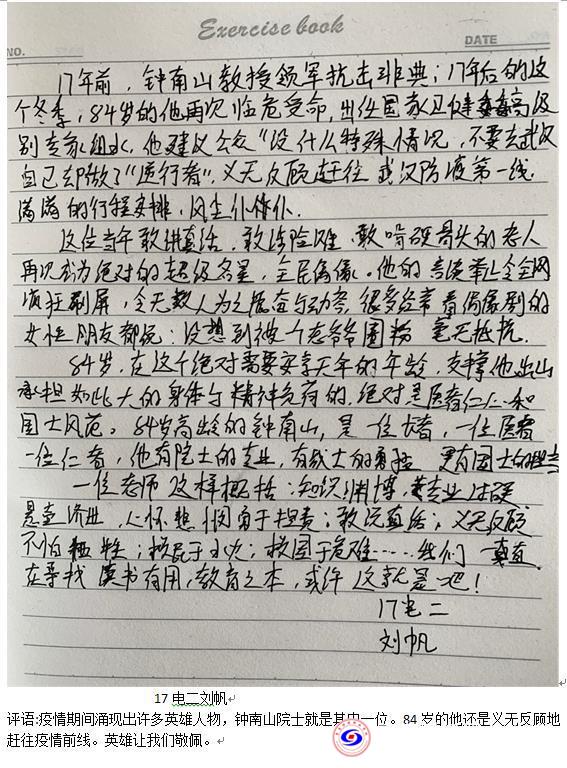 Exercise book
NO.
DATE
17年前，钟南山教授领军抗击非典；17年后的这
个冬季，84岁的他再次临危受命，出任国家卫健高级
别专家组长，他建议公众“没什么特殊情况，不要去武汉
自己却做了“逆行者”，义无反顾赶往武汉防疫第一线.
满满的行程安排，风尘仆仆.
这位当年敢讲真话，敢涉险难，敢啃硬骨头的老人
再次成为绝对的超级名星，全民偶像。他的言谈举止令全网
疯狂刷屏，令无数人为之振奋与动容，很多经常看偶像剧的
女性朋友都说：没想到被一个老爷爷圈粉 毫无抵抗.
84岁，在这个绝对需要安享天年的年龄，支撑他出山
承担如此大的身体与精神负荷的，绝对是医者仁心和
国士风范。84岁高龄的钟南山，是一位大者，一位医者
一位仁者，他有院士的专业，有战士的勇猛 更有国士的担当
一位老师这样概括：知识渊博，专业过硬
悬壶济世，心怀悲悯勇于担责；敢说真话，义无反顾
不怕牺牲；救民于水火；救国于危难……我们 一直
在寻找 读书有用，教育之本，或许 这就是吧！
17电二
刘帆
17电二刘帆
评语:疫情期间涌现出许多英雄人物，钟南山院士就是其中一位。84岁的他还是义无反顾地
赶往疫情前线。英雄让我们敬佩。